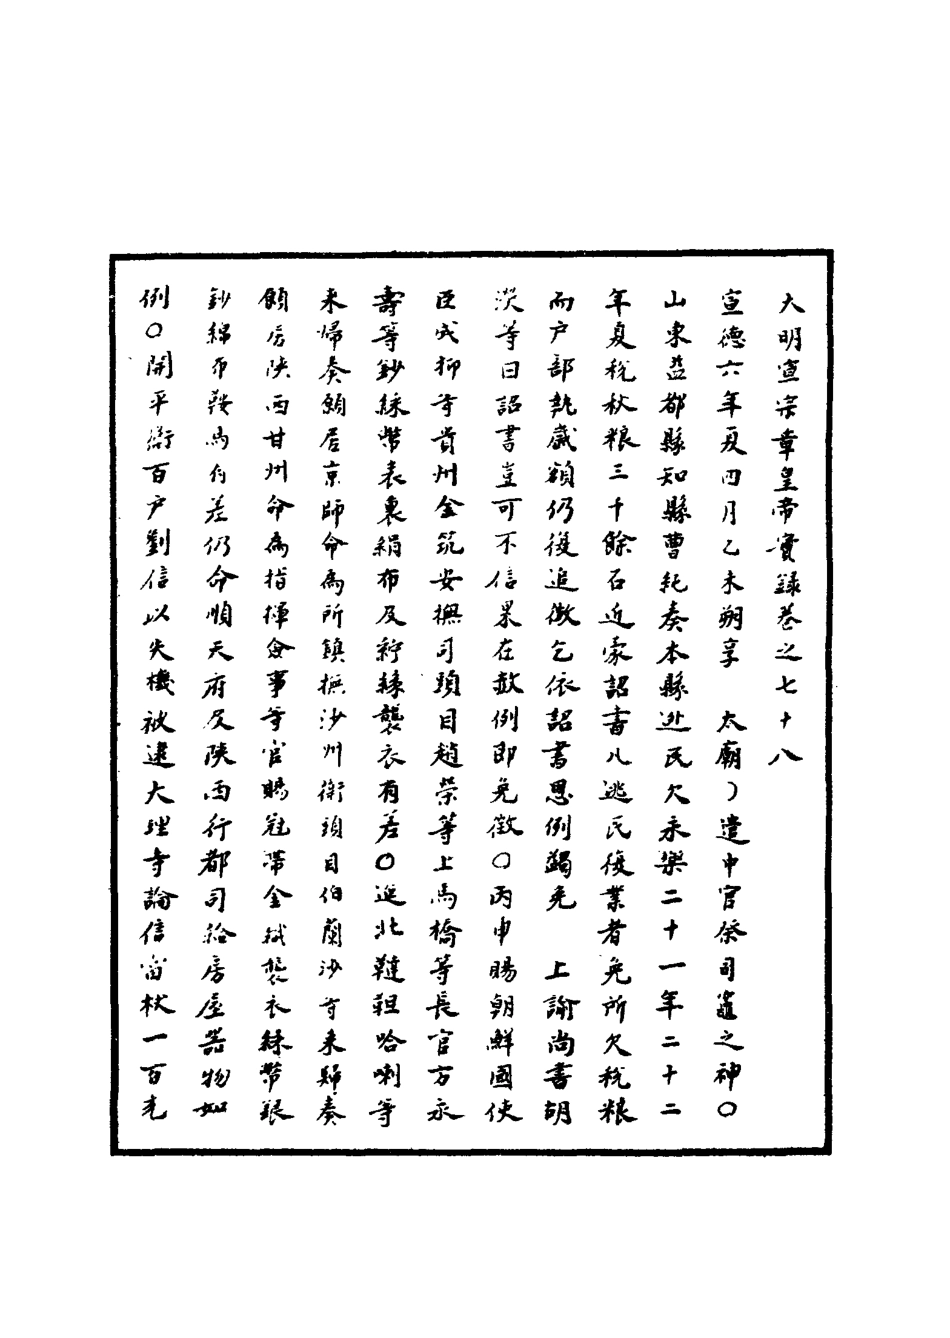 大明宣宗章皇帝實錄卷之七十八
宣德六年夏四月乙未朔享　太廟○遣中官祭司竈之神○
山東益都縣知縣曹軏奏本縣逃民欠永樂二十一年二十二
年夏稅秋粮三千餘石近蒙詔書凡逃民復業者免所欠稅粮
而户部執歲額仍復追徵乞依詔書恩例蠲免　上諭尚書胡
濙等曰詔書豈可不信果在赦例即免徵○丙申賜朝鮮國使
臣成抑等貴州金筑安撫司頭目趙榮等上馬橋等長官方永
壽等鈔綵幣表裏絹布及紵絲襲衣有差○迤北韃靼哈喇等
来帰奏願居京師命為所鎮撫沙州衛頭目伯蘭沙等来歸奏
願居陝西甘州命為指揮僉事等官賜冠帶金織襲衣綵幣銀
鈔綿布鞍馬有差仍命順天府及陝西行都司給房屋噐物如
例○開平衛百户劉信以失機被逮大理寺論信當杖一百充